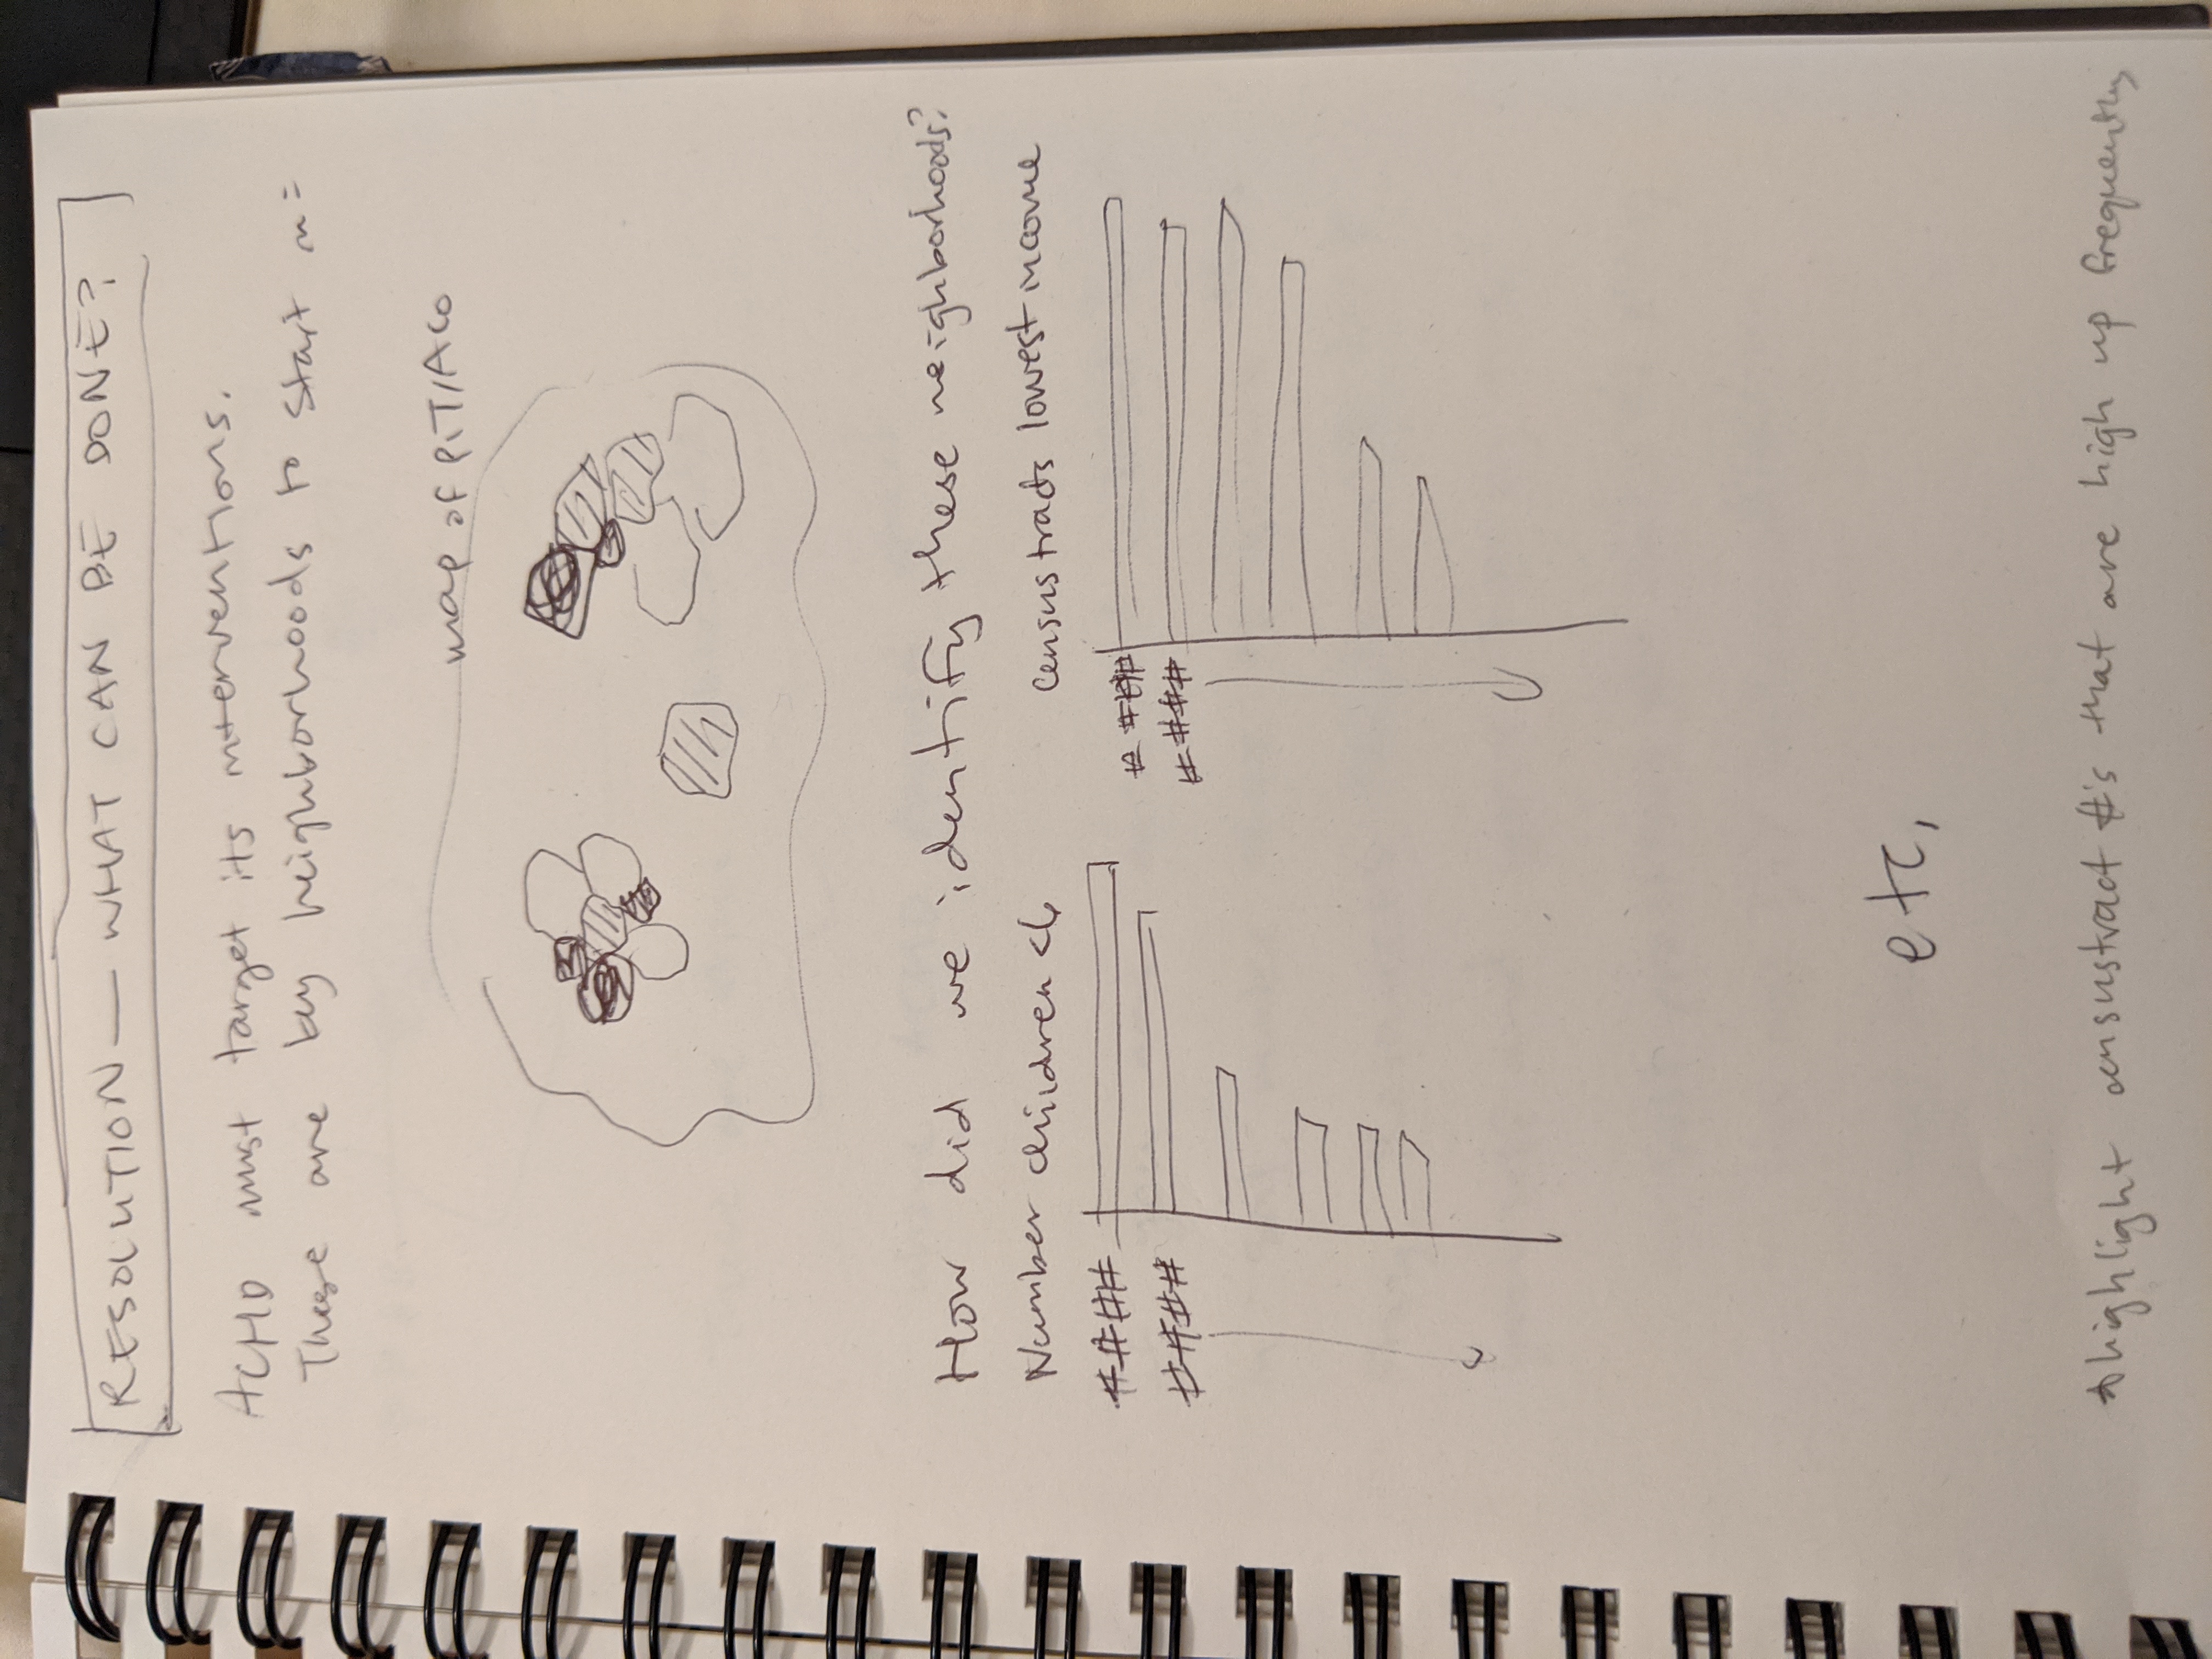 RESOLUTION — WHAT CAN BE DONE?
ACHD must target its interventions.
These are key neighborhoods to start in:
map of PIT/ACo
How did we identify these neighborhoods?
Number children <6
census tracts lowest income
####
# ###
####
# ###
etc,
*highlight census tract #'s that are high up frequently